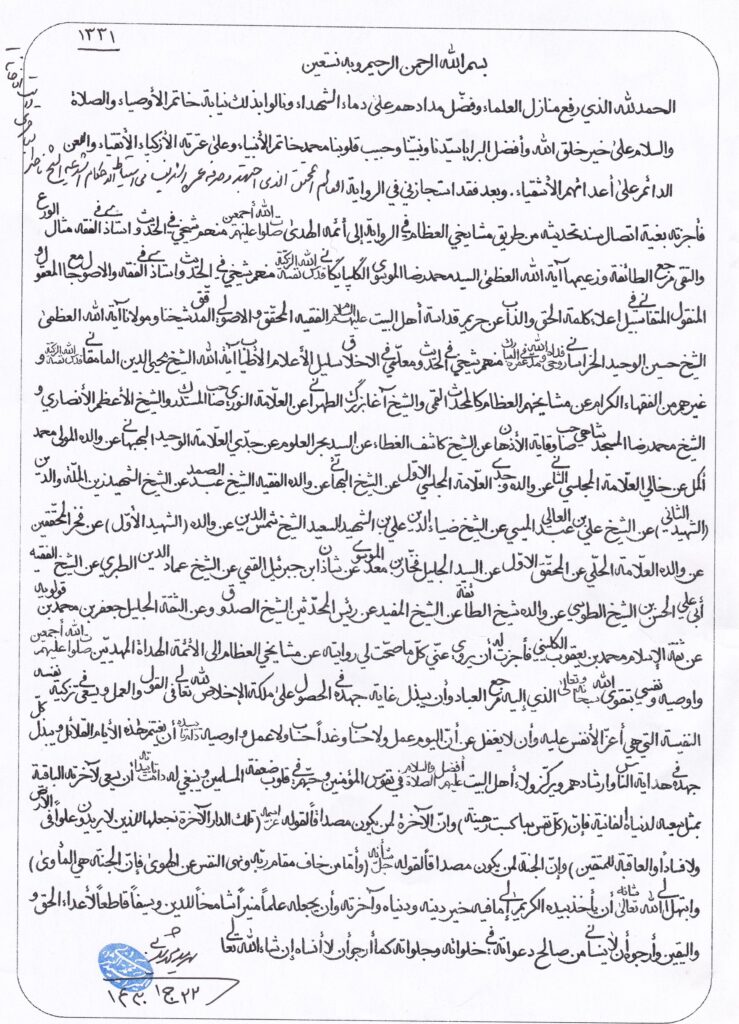 ١٣٣١
بسم الله الرحمن الرحيم وبه نستعين
الحمد لله الذي رفع منازل العلماء وفضّل مدادهم على دماء الشهداء ونالوا بذلك نيابة خاتم الأوصياء والصلاة
والسلام على خير خلق الله وأفضل البرايا سيدنا ونبينا وحبيب قلوبنا محمد خاتم الأنبياء وعلى عترته الأزكياء الأتقياء واللعن
الدائم على أعدائهم الأشقياء. وبعد فقد استجازني في الرواية العالم
فأجزته بغية اتصال سند تحديثه من طريق مشايخي العظام في الرواية إلى أئمة الهدى صلوات الله عليهم أجمعين منهم شيخي في الحديث وأستاذي في الفقه مثال الورع
والتقى مرجع الطائفة وزعيمها آية الله العظمى السيد محمد رضا الموسوي الگلپايگاني قدس الله نفسه الزكية منهم شيخي في الحديث وأستاذي في الفقه والأصول جامع المعقول و
المنقول المتفاني في سبيل إعلاء كلمة الحق والذاب عن حريم قداسة أهل البيت عليهم السلام الفقيه المحقق والاصولي المدقق شيخنا ومولانا آية الله العظمى
الشيخ حسين الوحيد الخراساني منهم شيخي في الحديث ومعلمي في الاخلاق سليل الأعلام الأطياب آية الله الشيخ محيي الدين المامقاني قدس الله نفسه الزكية و
غيرهم من الفقهاء الكرام عن مشايخهم العظام كالمحدث القمي والشيخ آغا بزرگ الطهراني عن العلامة النوري صاحب المستدرك والشيخ الأعظم الأنصاري و
الشيخ محمد رضا المسجد شاهي صاحب وقاية الأذهان عن الشيخ كاشف الغطاء عن السيد بحر العلوم عن جدي العلامة الوحيد البهبهاني عن والده المولى محمد
أكمل عن خالي العلامة المجلسي الثاني عن والده وجدي العلامة المجلسي الاول عن الشيخ البهائي عن والده الفقيه الشيخ عبد الصمد عن الشيخ الشهيد زين الملة والدين
(الشهيد الثاني) عن الشيخ علي بن عبد العالي الميسي عن الشيخ ضياء الدين علي بن الشهيد السعيد الشيخ شمس الدين عن والده (الشهيد الأول) عن فخر المحققين
عن والده العلامة الحلي عن المحقق الاول عن السيد الجليل فخار بن معد الموسوي عن شاذان ابن جبرئيل القمي عن الشيخ عماد الدين الطبري عن الشيخ الفقيه
أبي علي الحسن بن الشيخ الطوسي عن والده شيخ الطائفة عن الشيخ المفيد عن رئيس المحدثين الشيخ الصدوق وعن الثقة الجليل جعفر بن محمد بن قولويه
عن ثقة الإسلام محمد بن يعقوب الكليني فأجزت له أن يروي عني كل ما صحت لي روايته عن مشايخي العظام إلى الأئمة الهداة المهديين صلوات الله عليهم أجمعين
واوصيه ونفسي بتقوى الله سبحانه وتعالى الذي إليه مرجع العباد وأن يبذل غاية جهده في الحصول على ملكة الإخلاص لله تعالى في القول والعمل ويسعى في تزكية نفسه
النفيسة التي هي أعز الأنفس عليه وأن لا يغفل عن أن اليوم عمل ولا حساب وغداً حساب ولا عمل واوصيه أن يغتنم هذه الأيام القلائل ويبذل كل
جهده في هداية الناس وارشادهم ويركز ولاء أهل البيت عليهم أفضل الصلاة والسلام في نفوس المؤمنين وحبهم في قلوب ضعفة المسلمين وينبغي له دامت تأييداته أن يسعى لآخرته الباقية
بمثل سعيه لدنياه الفانية فإن (كل نفس بما كسبت رهينة) وان الآخرة لمن يكون مصداقاً لقوله عز اسمه (تلك الدار الآخرة نجعلها للذين لا يريدون علواً في الأرض
ولا فساداً والعاقبة للمتقين) وإن الجنة لمن يكون مصداقاً لقوله جل شأنه (وأما من خاف مقام ربه ونهى النفس عن الهوى فإن الجنة هي المأوى)
وابتهل إلى الله تعالى شأنه أن يأخذ بيده الكريم إلى ما فيه خير دينه ودنياه وآخرته وأن يجعله علماً منيراً شامخاً للدين وسيفاً قاطعاً لأعداء الحق و
واليقين وأرجوه أن لا ينساني من صالح دعواته في خلواته وجلواته كما أرجو أن لا أنساه إن شاء الله تعالى
٢٢ ج١ ١٤٣٠